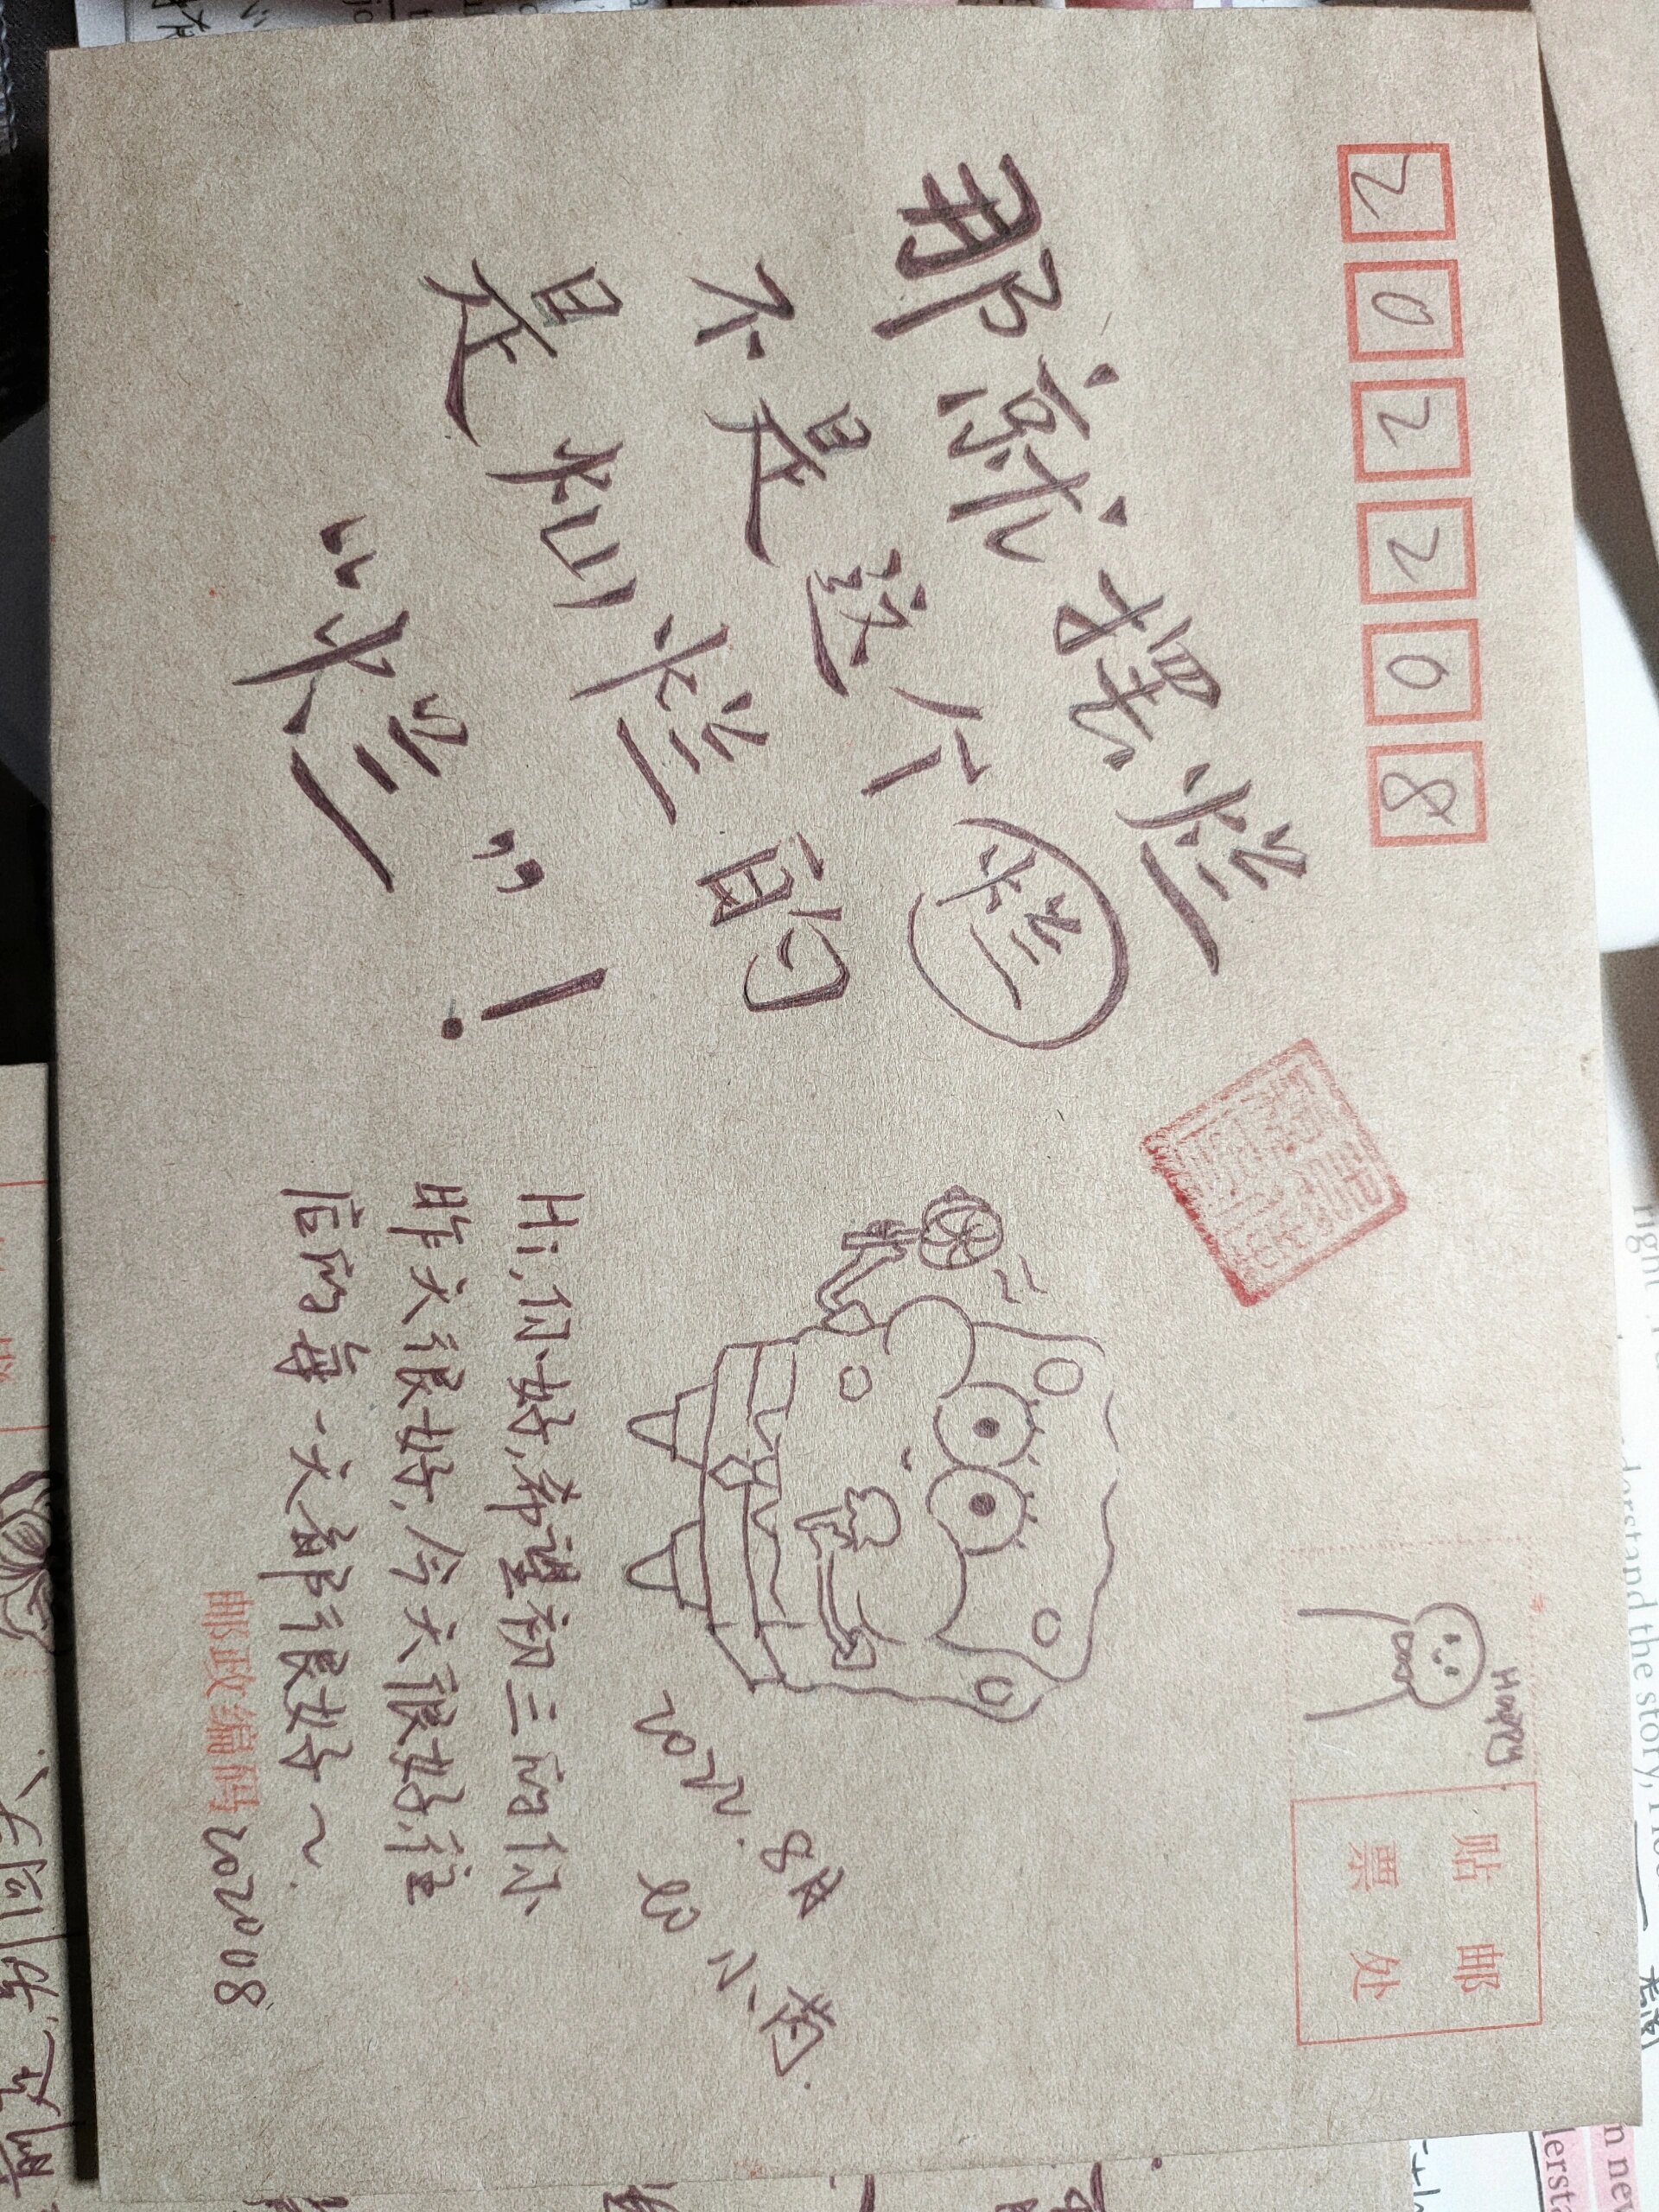 2 0 2 2 0 8
那就摆烂
不是这个烂
是灿烂的
“烂”！
Happy
贴 邮
票 处
2022. 8月
Hi,你好,希望初三的你
昨天很好,今天很好,往
后的每一天都很好～
邮政编码 202008